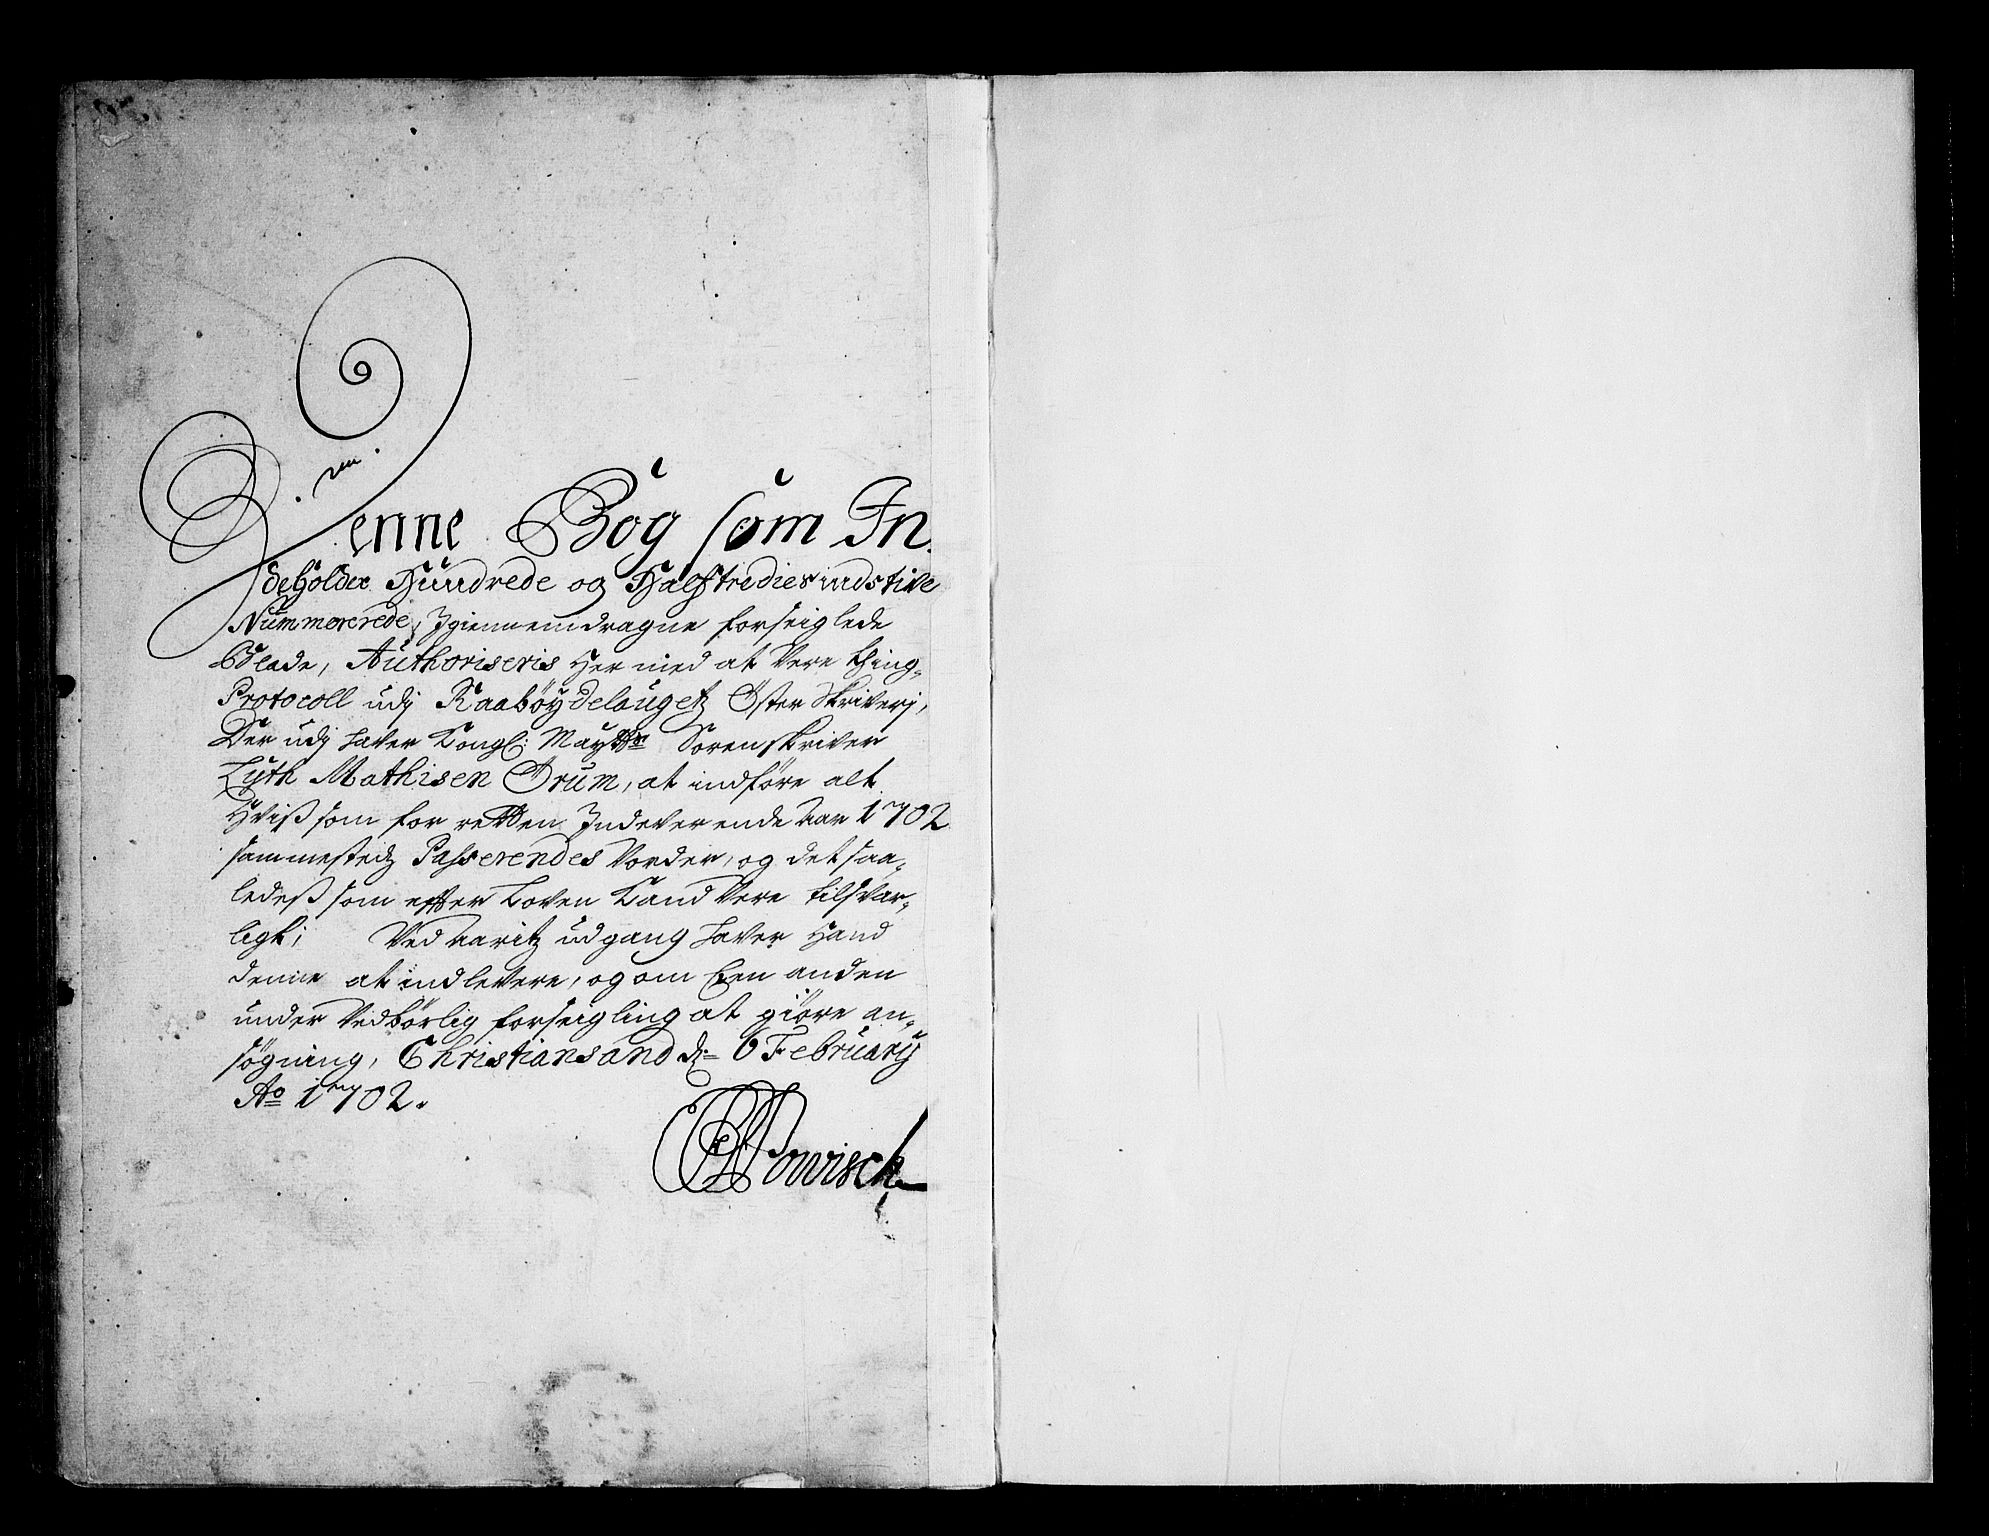 Denne Bog som In
deholder Hundrede og Halftrediesindstive
Nummererede, Igiennemdragne forseiglede
Blade, Authoriseris Her med at Vere thing-
Protocoll udj Raabøydelauget Øster Skriverj,
Der udj haver Kongl: Maytts Sorenskriver
Lyth Mathisen Ørum, at indføre alt
Hviß som for retten Indeverende Aar 1702
sammestedz Passerendes Vorder, og det saa-
ledeß som efter Loven Kand Vere tilsvar-
ligt; Ved Aaritz udgang haver Hand
denne at indlevere, og om Een anden
under Vedbørlig forseigling at giøre an-
søgning, Christiansand d: 6 February
Ao 1702.
Powisch